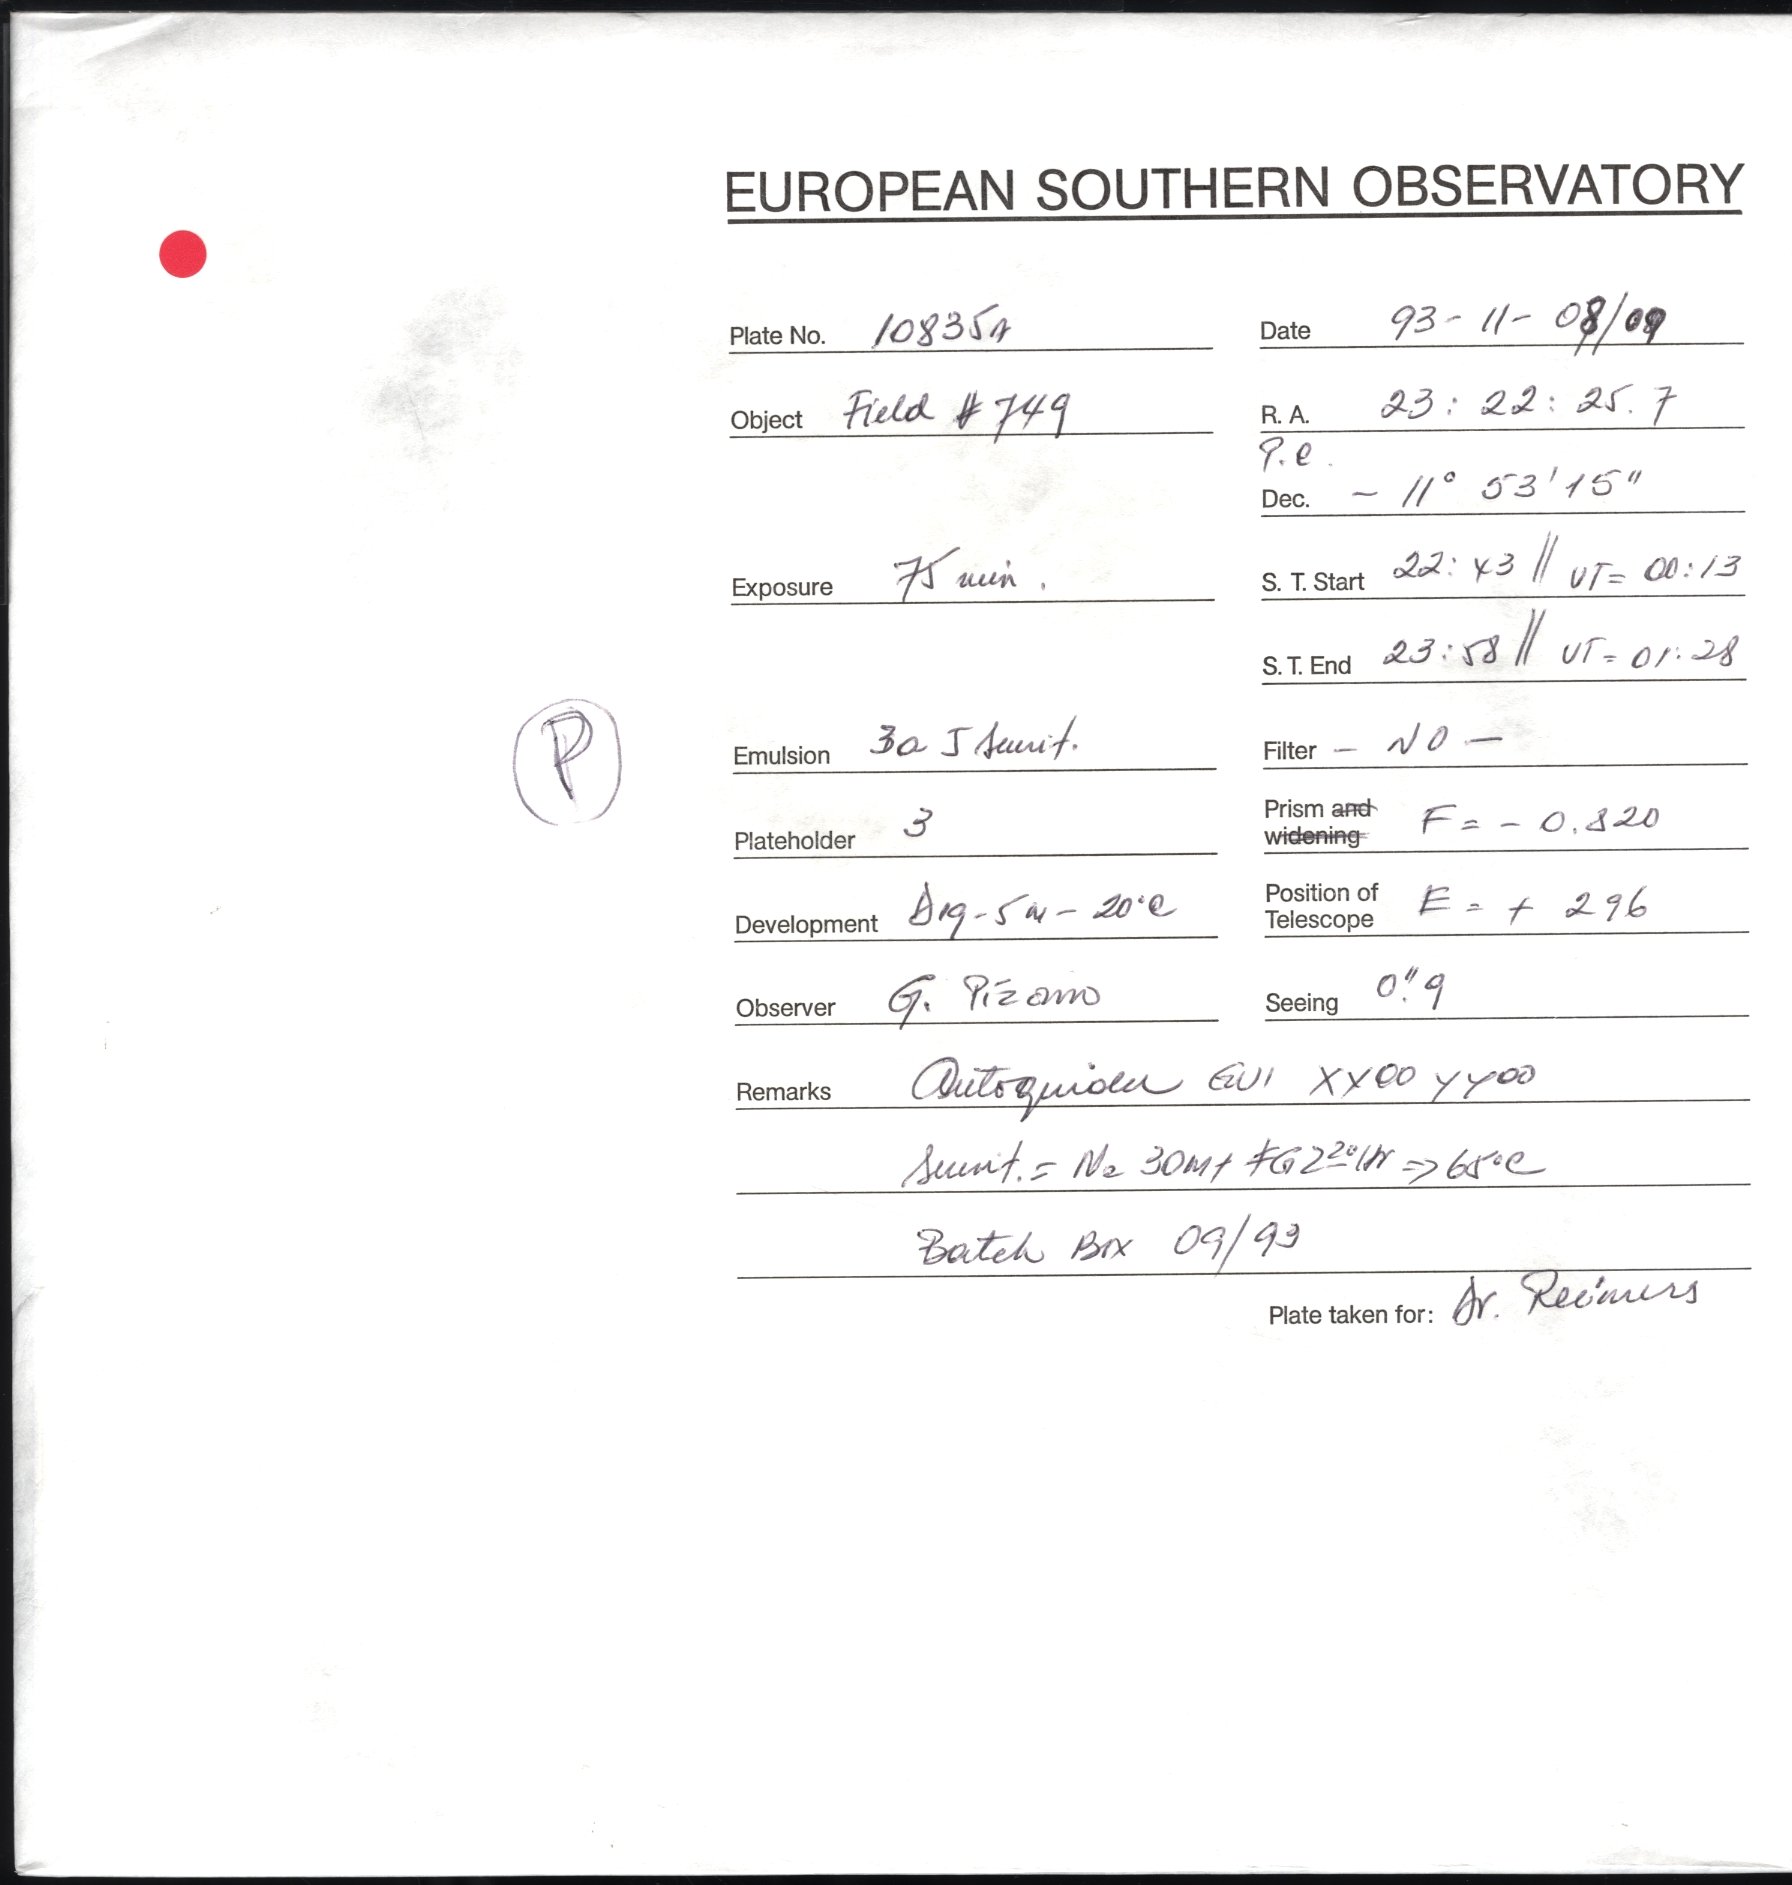 EUROPEAN SOUTHERN OBSERVATORY
Plate No. 10835A
Date 93-11-08/09
Object Field #749
R. A. 23: 22: 25.7
P.e.
Dec. - 11° 53' 15"
Exposure 75 min.
S. T. Start 22:43 // UT= 00:13
S. T. End 23:58 // UT= 01:28
P
Emulsion 3a J sensit.
Filter - NO -
Plateholder 3
Prism and
widening F= - 0.820
Development D19-5m-20°C
Position of
Telescope E= + 296
Observer G. Pizarro
Seeing 0".9
Remarks Autoguider XX00 YY00
Sensit.= N2 30m+ FG2 => 65°C
Batch Box 09/93
Plate taken for: Dr. Reimers